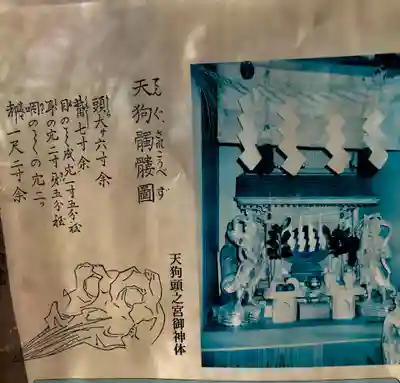 天狗髑髏圖
てんぐ されこうべ ず
頭大サ六寸余
七寸余
目の
穴二寸五分程
耳の穴二寸五分程
咽の
の穴二つ
一尺二寸余
天狗頭之宮御神体